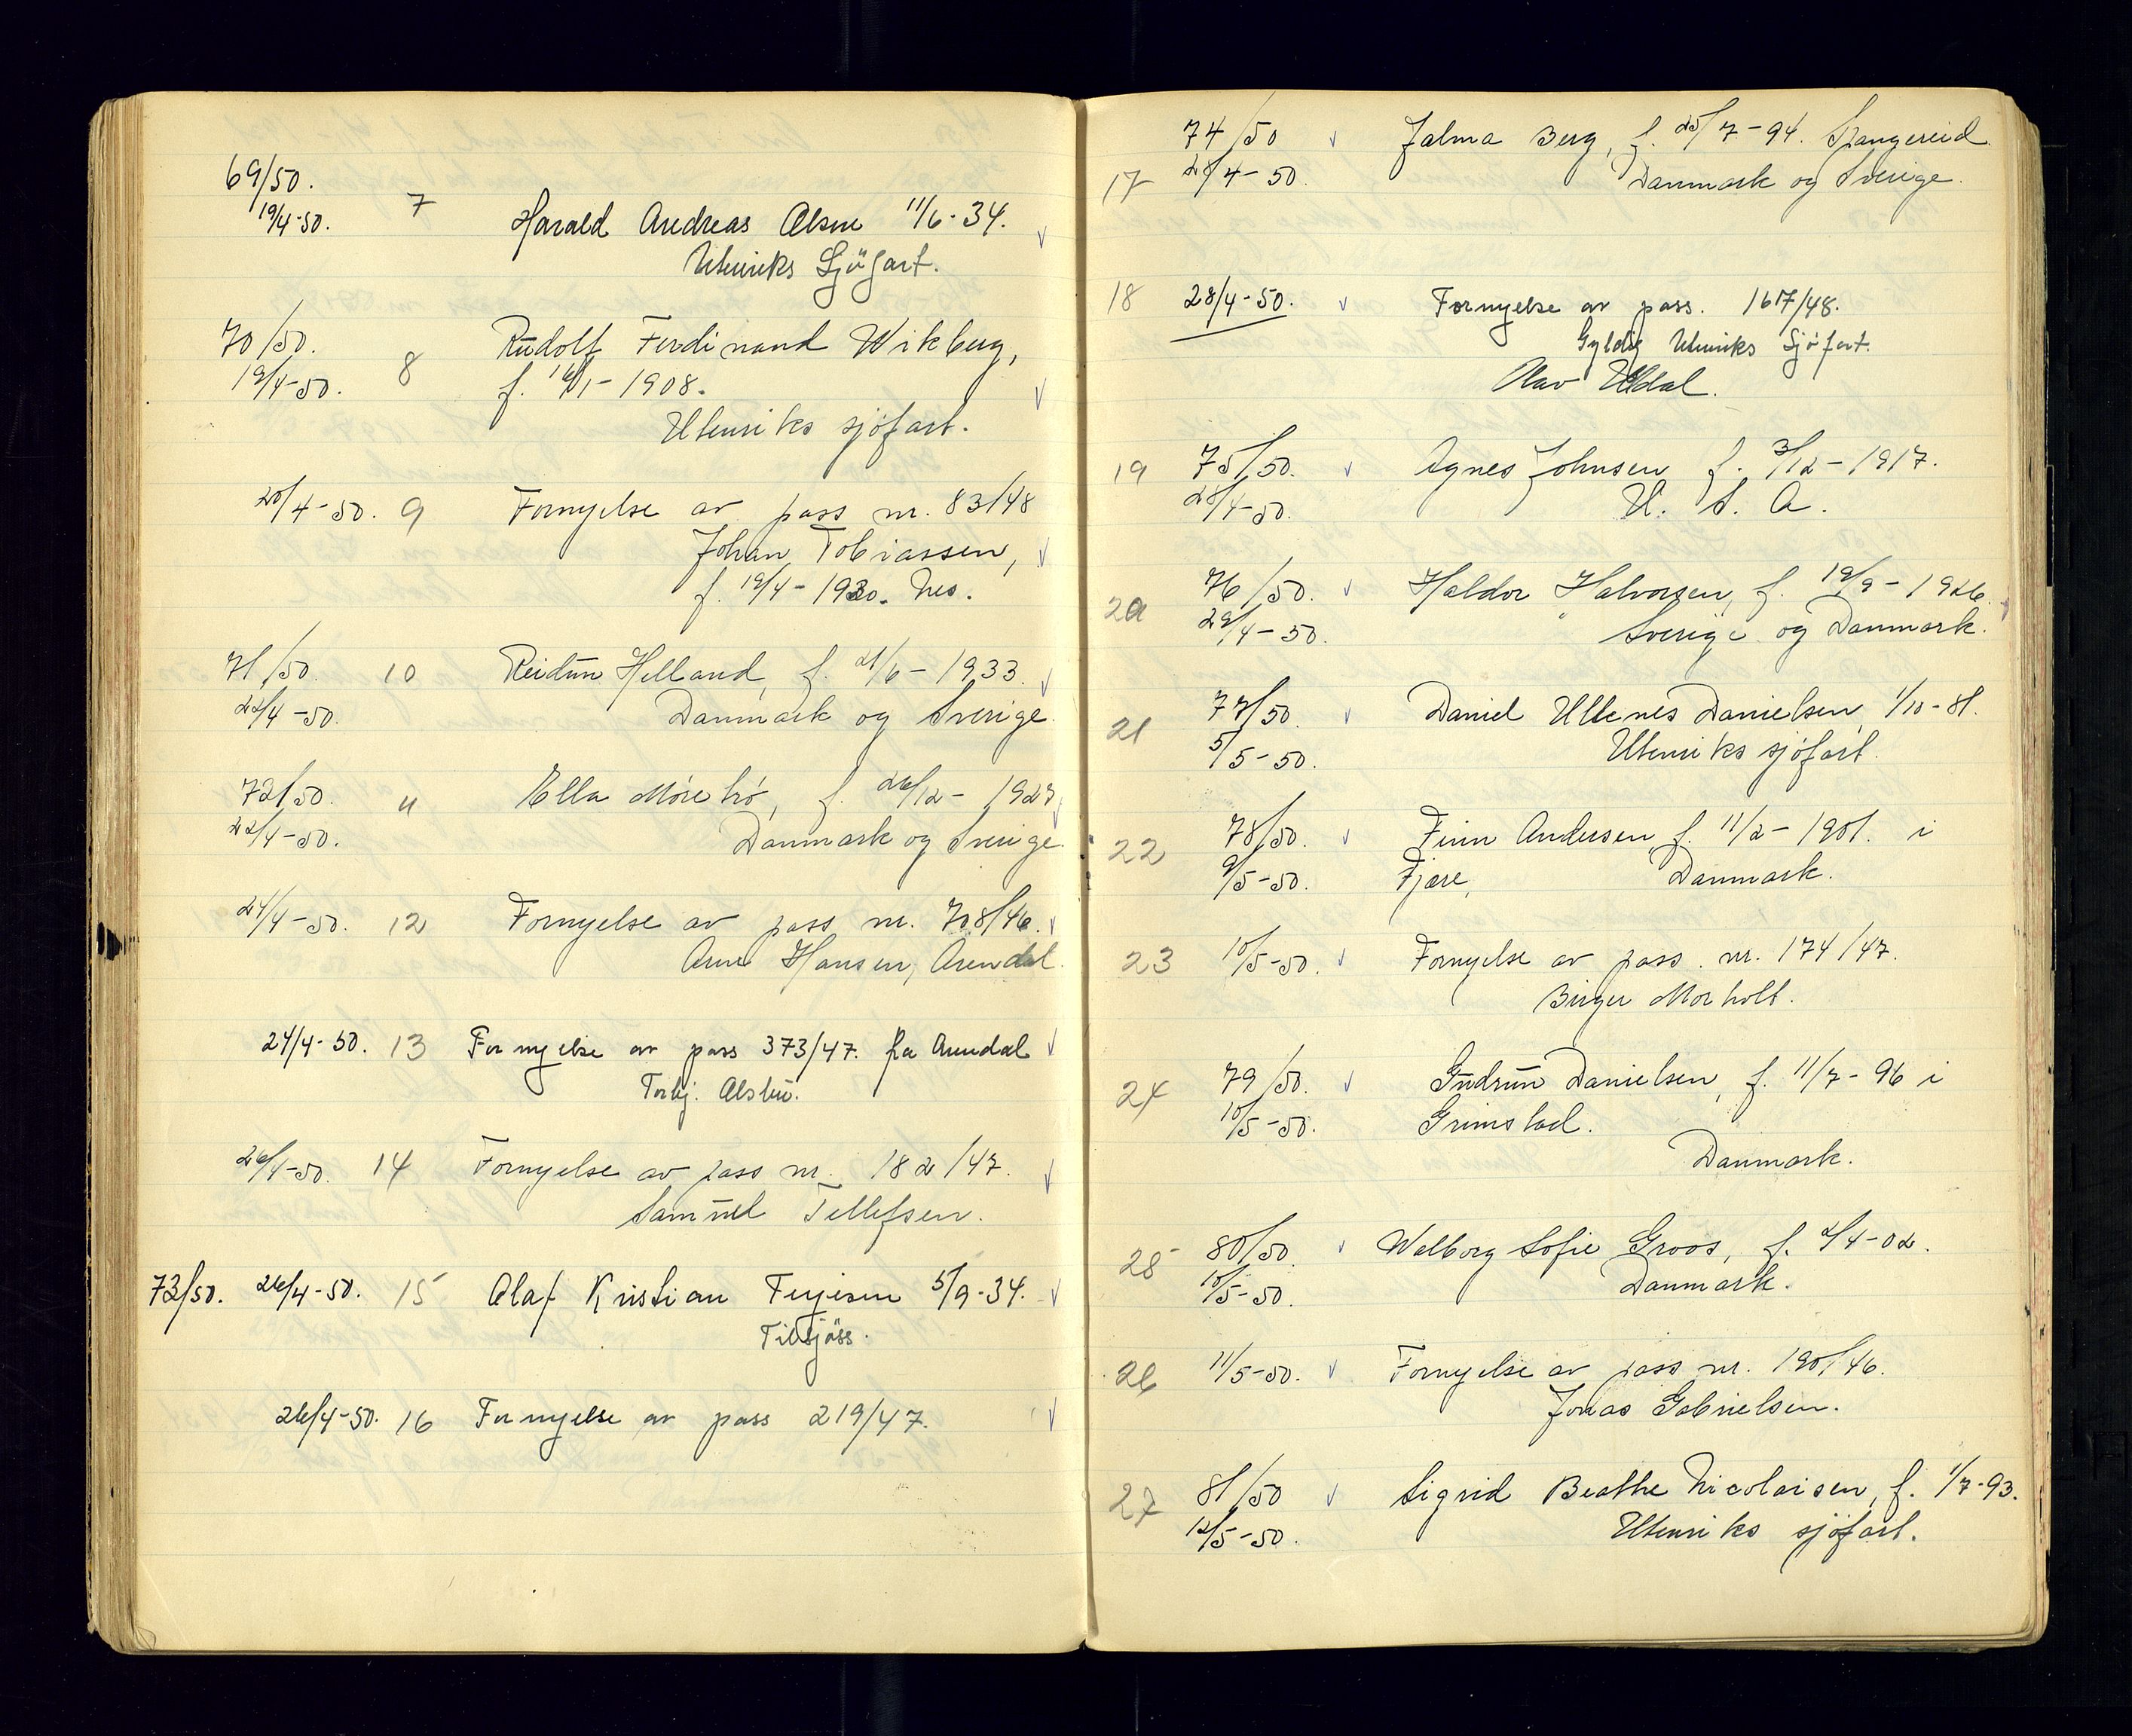 69/50.
19/4-50. 7 Harald Andreas Olsen 11/6-34.
Utenriks Sjöfart.
70/50. Rudolf Ferdinand Wikberg,
19/4-50. 8 f. 1908.
Utenriks sjøfart.
20/4-50. 9 Fornyelse av pass nr. 83/48
Johan Tobiassen,
f. 19/4-1930. Nes.
71/50. 10 Reidun Helland, f. 21/6-1933.
22/4-50. Danmark og Sverige.
72/50. 11 Ella f. 26/12-
22/4-50. Danmark og Sverige.
24/4-50. 12 Fornyelse av pass nr. 708/46.
Arne Hansen, Arendal.
24/4-50. 13 Fornyelse av pass 373/47. fra Arendal
Torbj. Alsbu.
26/4-50. 14 Fornyelse av pass nr. 182/47.
Samuel Tellefsen.
73/50. 26/4-50. 15 Olaf Kristian 5/9-34.
Tilsjøss.
26/4-50. 16 Fornyelse av pass 219/47.
74/50 Jalma Berg, f. 25/7-94. Spangereid.
17 28/4-50. Danmark og Sverige.
18 28/4-50. Fornyelse av pass. 1617/48.
Gyldig Utenriks Sjøfart.
Olav Uldal.
19 75/50. Agnes Johnsen f. 3/12-1917.
28/4-50. U. S. A.
20 76/50. Haldor Halvorsen, f. 19/9-1926.
29/4-50. Sverige og Danmark.
21 77/50. Daniel Ullenes Danielsen 1/10-81.
5/5-50. Utenriks sjøfart.
22 78/50. Finn Andersen, f. 11/2-1901. i
9/5-50. Fjære, Danmark.
23 10/5-50. Fornyelse av pass. nr. 174/47.
Birger Morholt.
24 79/50. Gudrun Danielsen, f. 11/7-96 i
10/5-50. Grimstad.
Danmark.
25 80/50. Walborg Sofie Groos, f. 2/4-02.
10/5-50. Danmark.
26 11/5-50. Fornyelse av pass nr. 190/46.
Jonas Gabrielsen.
27 81/50 Sigrid Beathe Nicolaisen, f. 1/7-93.
12/5-50. Utenriks sjøfart.